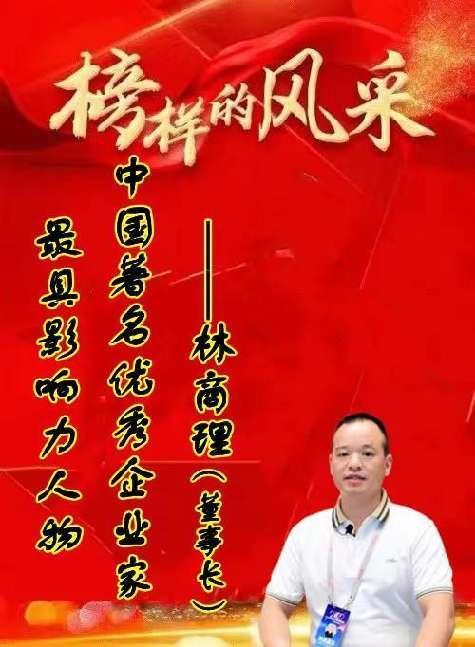 榜样的风采
——林商理(董事长)
中国著名优秀企业家
最具影响力人物